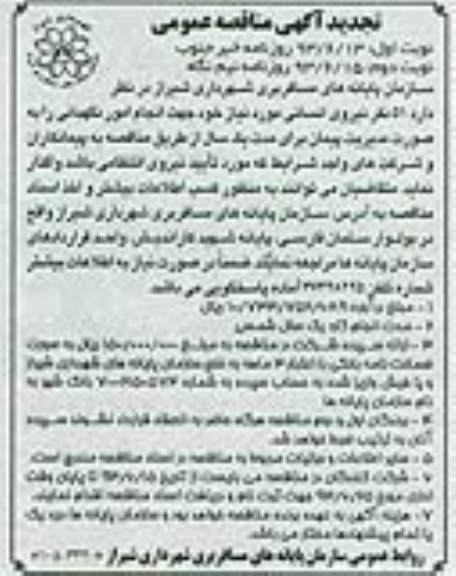 تجدید آگهی مناقصه عمومی
نوبت اول: ۹۳/۶/۱۳ روزنامه خبر جنوب
نوبت دوم: ۹۳/۶/۱۵ روزنامه نیم نگاه
سازمان پایانه های مسافربری شهرداری شیراز در نظر
دارد ۵۱ نفر نیروی انسانی مورد نیاز خود جهت انجام امور نگهبانی را به
صورت مدیریت پیمان برای مدت یک سال از طریق مناقصه به پیمانکاران
و شرکت های واجد شرایط که مورد تأیید نیروی انتظامی باشد واگذار
نماید متقاضیان می توانند به منظور کسب اطلاعات بیشتر و اخذ اسناد
مناقصه به آدرس سازمان پایانه های مسافربری شهرداری شیراز واقع
در بولوار سلمان فارسی پایانه شهید کاراندیش واحد قراردادهای
سازمان پایانه ها مراجعه نمایند ضمناً در صورت نیاز به اطلاعات بیشتر
شماره تلفن آماده پاسخگویی می باشد
۱- مبلغ برآورد ریال
۲- مدت انجام کار یک سال شمسی
۳- ارائه سپرده شرکت در مناقصه به مبلغ ریال به صورت
ضمانت نامه بانکی با اعتبار ۳ ماهه به نفع سازمان پایانه های شهرداری شیراز
و یا فیش واریز شده به حساب سپرده به شماره بانک شهر به
نام سازمان پایانه ها
۴- برندگان اول و دوم مناقصه هرگاه حاضر به انعقاد قرارداد نشوند سپرده
آنان به ترتیب ضبط خواهد شد.
۵- سایر اطلاعات و جزئیات مربوط به مناقصه در اسناد مناقصه مندرج است.
شرکت کنندگان در مناقصه می بایست از تاریخ تا پایان وقت
اداری مورخ جهت ثبت نام و دریافت اسناد مناقصه اقدام نمایند.
۷- هزینه آگهی به عهده برنده مناقصه خواهد بود و سازمان پایانه ها در رد یک
یا تمام پیشنهادها مختار می باشد.
روابط عمومی سازمان پایانه های مسافربری شهرداری شیراز